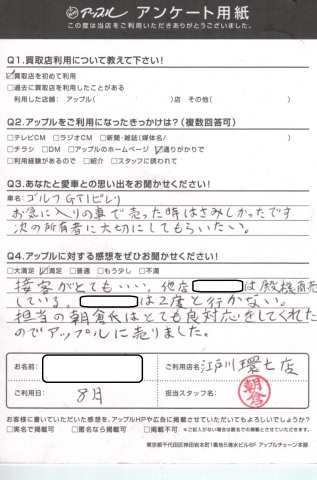 アップル アンケート用紙
この度は当店をご利用いただきありがとうございました。
Q1.買取店利用について教えて下さい!
☑買取を初めて利用
□過去に買取を利用したことがある
利用した店舗: アップル( )店 その他( )
Q2.アップルをご利用になったきっかけは?(複数回答可)
□テレビCM □ラジオCM □新聞・雑誌(媒体名/ )
□チラシ □DM □アップルのホームページ ☑通りがかりで
□利用経験があるので □紹介 □スタッフに誘われて
Q3.あなたと愛車との思い出をお聞かせください!
車名: ゴルフGTIピレリ
お気に入りの車で売った時はさみしかったです
次の所有者に大切にしてもらいたい。
Q4.アップルに対する感想をぜひお聞かせください!
□大満足 ☑満足 □普通 □もう少し □不満
接客がとてもいい、他店 は殿様商売
している。 は2度と行かない。
担当の朝倉氏はとても良対応をしてくれた
のでアップルに売りました。
お名前:
ご利用店名: 江戸川環七店
ご利用日: 8月
担当スタッフ名: 朝倉
お客様に書いていただいた感想を、アップルHPや広告に掲載させていただいてもよろしいでしょうか?
□実名で掲載可 □匿名なら掲載可 □掲載不可 ※ご記入がない場合は匿名での掲載とさせていただきます。
東京都千代田区神田岩本町1番地5清水ビル6F アップルチェーン本部